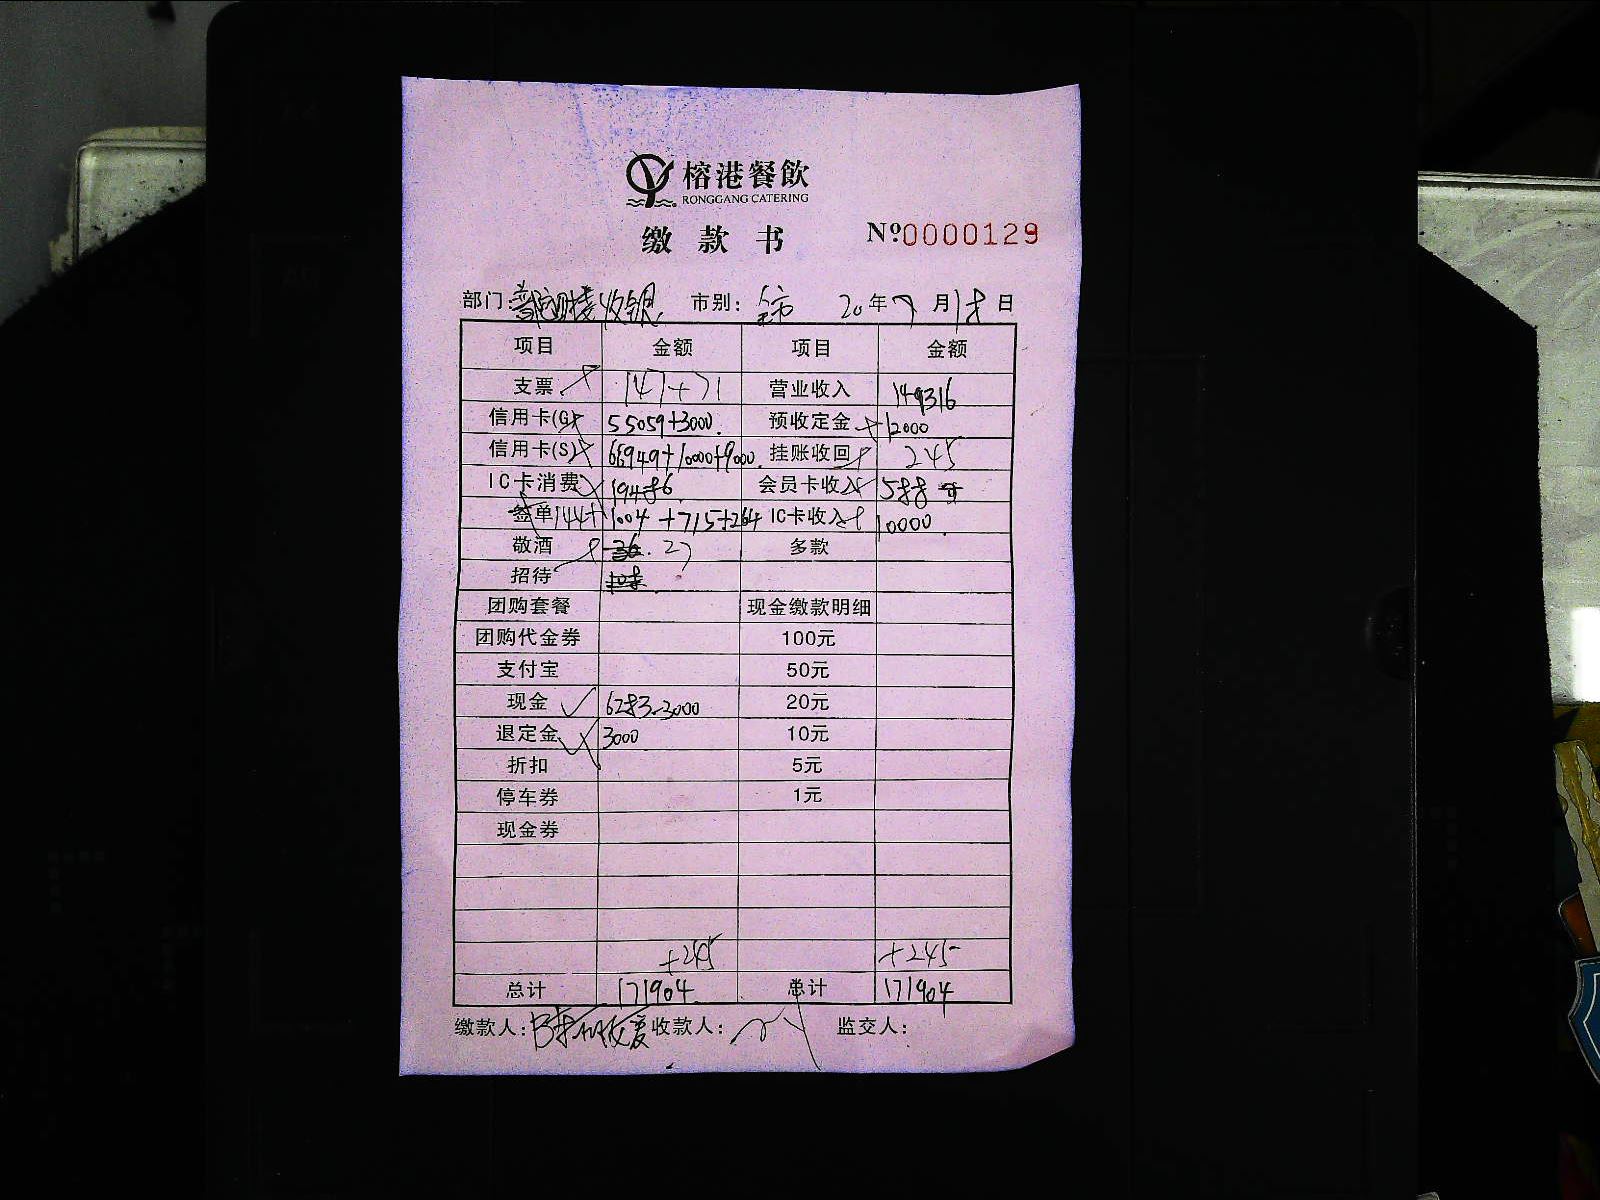 榕港餐飲
RONGGANG CATERING
缴款书 №0000129
部门: 收银 市别: 全市 20年7月18日
项目 金额 项目 金额
支票 147+71 营业收入 149316
信用卡(G) 55059+3000 预收定金 12000
信用卡(S) 66949+10000+9000 挂账收回 245
IC卡消费 19486 会员卡收入 588
签单 144+1004+715+264 IC卡收入 10000
敬酒 27 多款
招待
团购套餐 现金缴款明细
团购代金券 100元
支付宝 50元
现金 6283-3000 20元
退定金 3000 10元
折扣 5元
停车券 1元
现金券
+245 +245
总计 171904 总计 171904
缴款人: 收款人: 监交人: